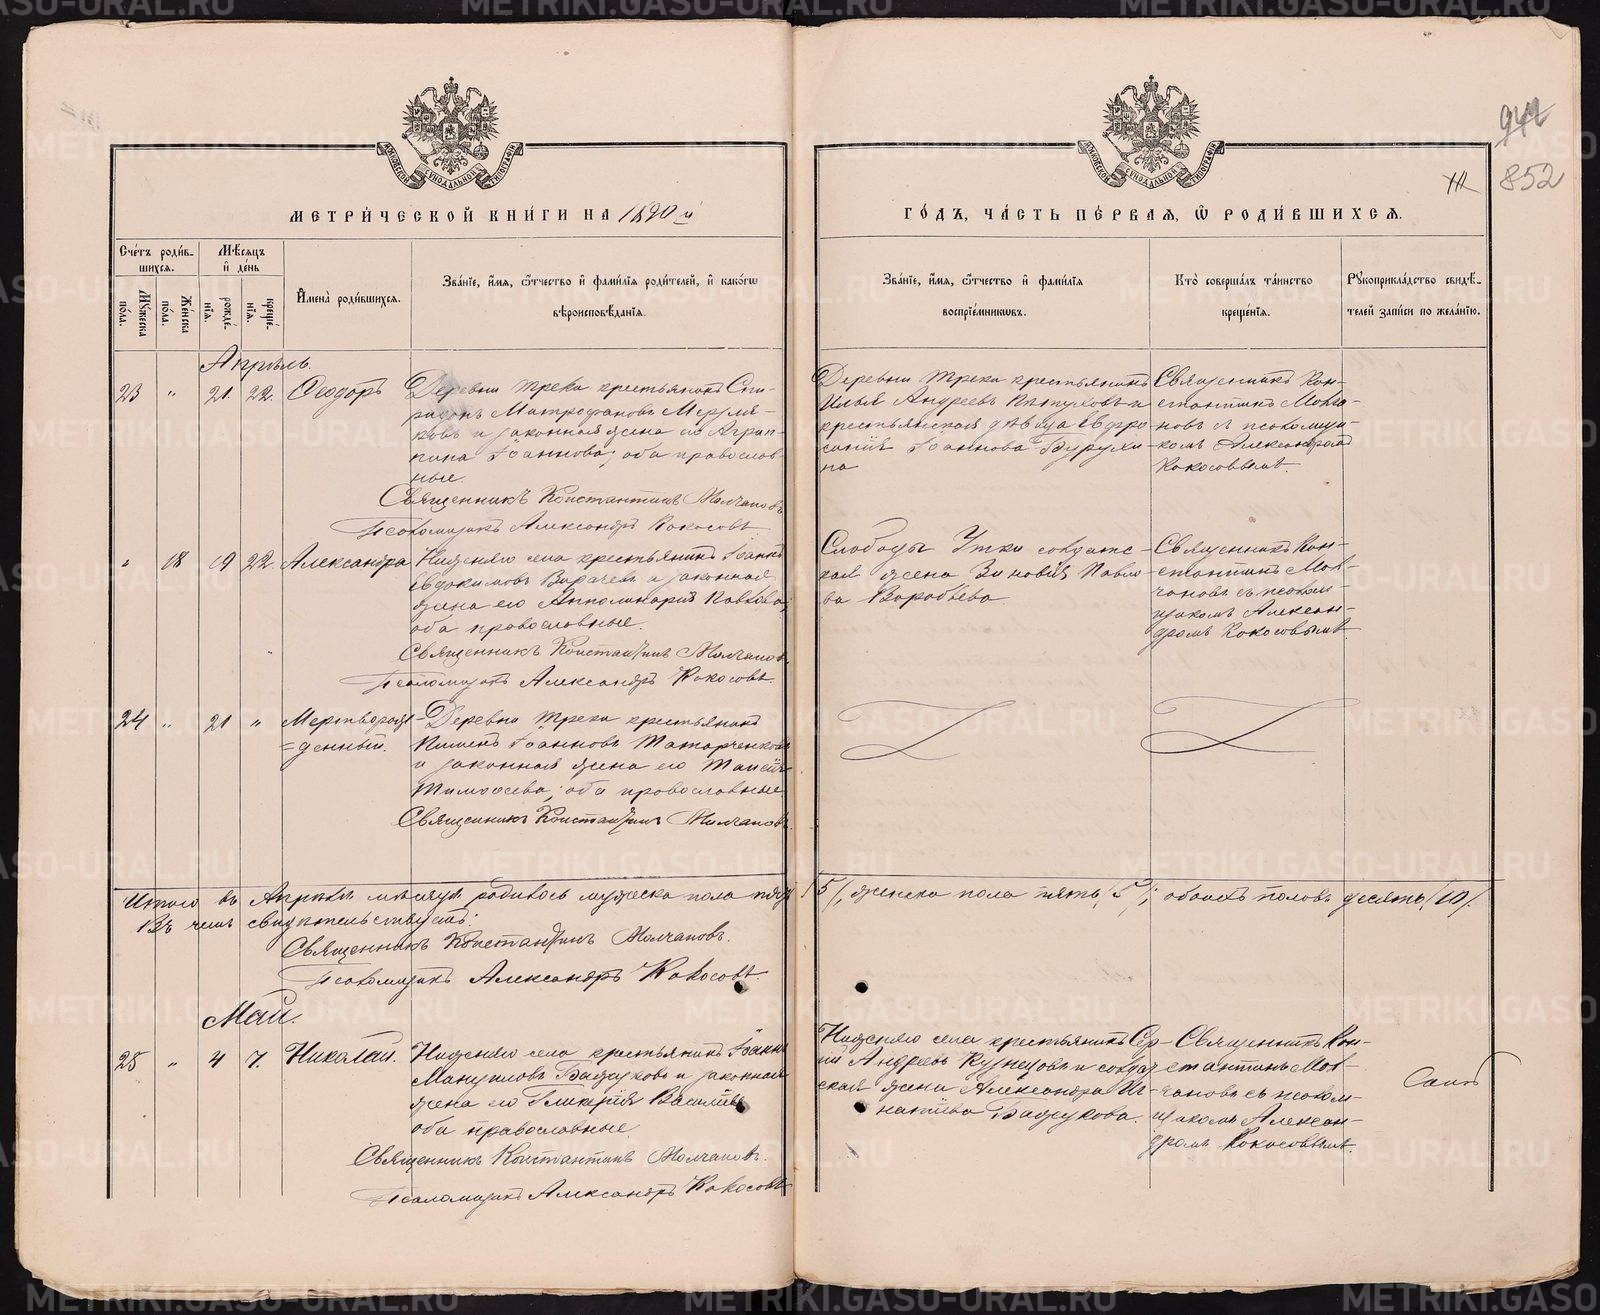 942
852
МОСКОВСКОЙ СѴНОДАЛЬНОЙ ТИПОГРАФІИ
МОСКОВСКОЙ СѴНОДАЛЬНОЙ ТИПОГРАФІИ
МЕТРИЧЕСКОЙ КНИГИ НА 1890 й
ГОДЪ, ЧАСТЬ ПЕРВАЯ, Ѡ РОДИВШИХСЯ.
Счетъ родив-
шихся.
Мѣсяцъ
и день
Мужеска
пола.
Женска
пола.
рожде-
нія.
креще-
нія.
Имена родившихся.
Званіе, имя, ѿчество и фамилія родителей, и какогѡ
вѣроисповѣданія.
Званіе, имя, ѿчество и фамилія
воспріемникѡвъ.
Кто совершалъ таинство
крещенія.
Рукоприкладство свидѣ-
телей записи по желанію.
Апрѣль.
23 " 21 22. Ѳеодоръ
Деревни Трека крестьянинъ Спи-
ридонъ Митрофановъ Меруля-
ковъ и законная жена его Агрип-
пина Іоаннова; оба православ-
ные.
Священникъ Константинъ Молчановъ
Псаломщикъ Александръ Кокосовъ
Деревни Трека крестьянинъ
Илья Андреевъ Пѣтуховъ и
крестьянская дѣвица Евфро-
синія Іоаннова Бурухи-
на
Священникъ Кон-
стантинъ Молча-
новъ съ псаломщи-
комъ Александромъ
Кокосовымъ
" 18 19 22. Александра
Нижняго села крестьянинъ Іоаннъ
Евдокимовъ Вирачевъ и законная
жена его Апполинарія Павлова;
оба православные.
Священникъ Константинъ Молчановъ
Псаломщикъ Александръ Кокосовъ.
Слободы Утки солдатс-
кая жена Зиновія Павло-
ва Воробьева
Священникъ Кон-
стантинъ Мол-
чановъ съ псалом-
щикомъ Алексан-
дромъ Кокосовымъ
24 " 21 " Мертворож-
=денный.
Деревни Трека крестьянинъ
Пименъ Іоанновъ Татарченковъ
и законная жена его Таисія
Тимоѳеева; оба православные
Священникъ Константинъ Молчановъ.
Итого въ Апрѣлѣ мѣсяцѣ родилось мужеска пола пять /5/, женска пола пять /5/; обоихъ половъ десять /10/.
Въ чемъ свидѣтельствуемъ:
Священникъ Константинъ Молчановъ.
Псаломщикъ Александръ Кокосовъ.
Май.
25 " 4 7. Николай.
Нижняго села крестьянинъ Іоаннъ
Мануиловъ Бажуковъ и законная
жена его Гликерія Васильева
оба православные
Священникъ Константинъ Молчановъ.
Псаломщикъ Александръ Кокосовъ
Нижняго села крестьянинъ Сер-
гій Андреевъ Кузнецовъ и солдат-
ская жена Александра Иг-
натіева Бажукова.
Священникъ Кон-
стантинъ Мол-
чановъ съ псалом-
щикомъ Алексан-
дромъ Кокосовымъ.